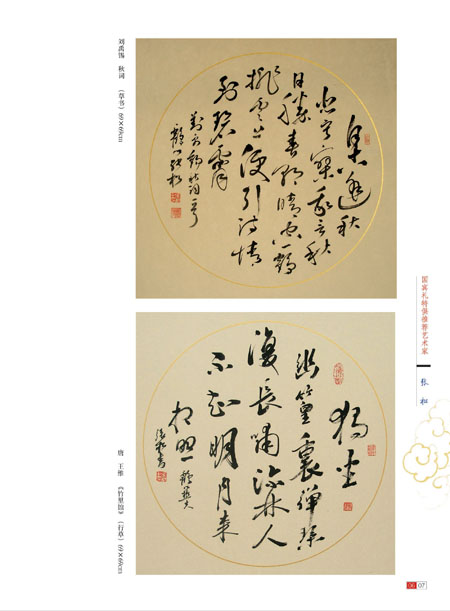 刘禹锡 秋词 (草书) 69×69cm
自古逢秋
悲寂寥我言秋
日胜春朝晴空一鹤
排云上便引诗情
到碧霄
国宾礼特供推荐艺术家
独坐
幽篁里弹琴
复长啸深林人
不知明月来
相照
唐 王维 《竹里馆》 (行草) 69×69cm
07